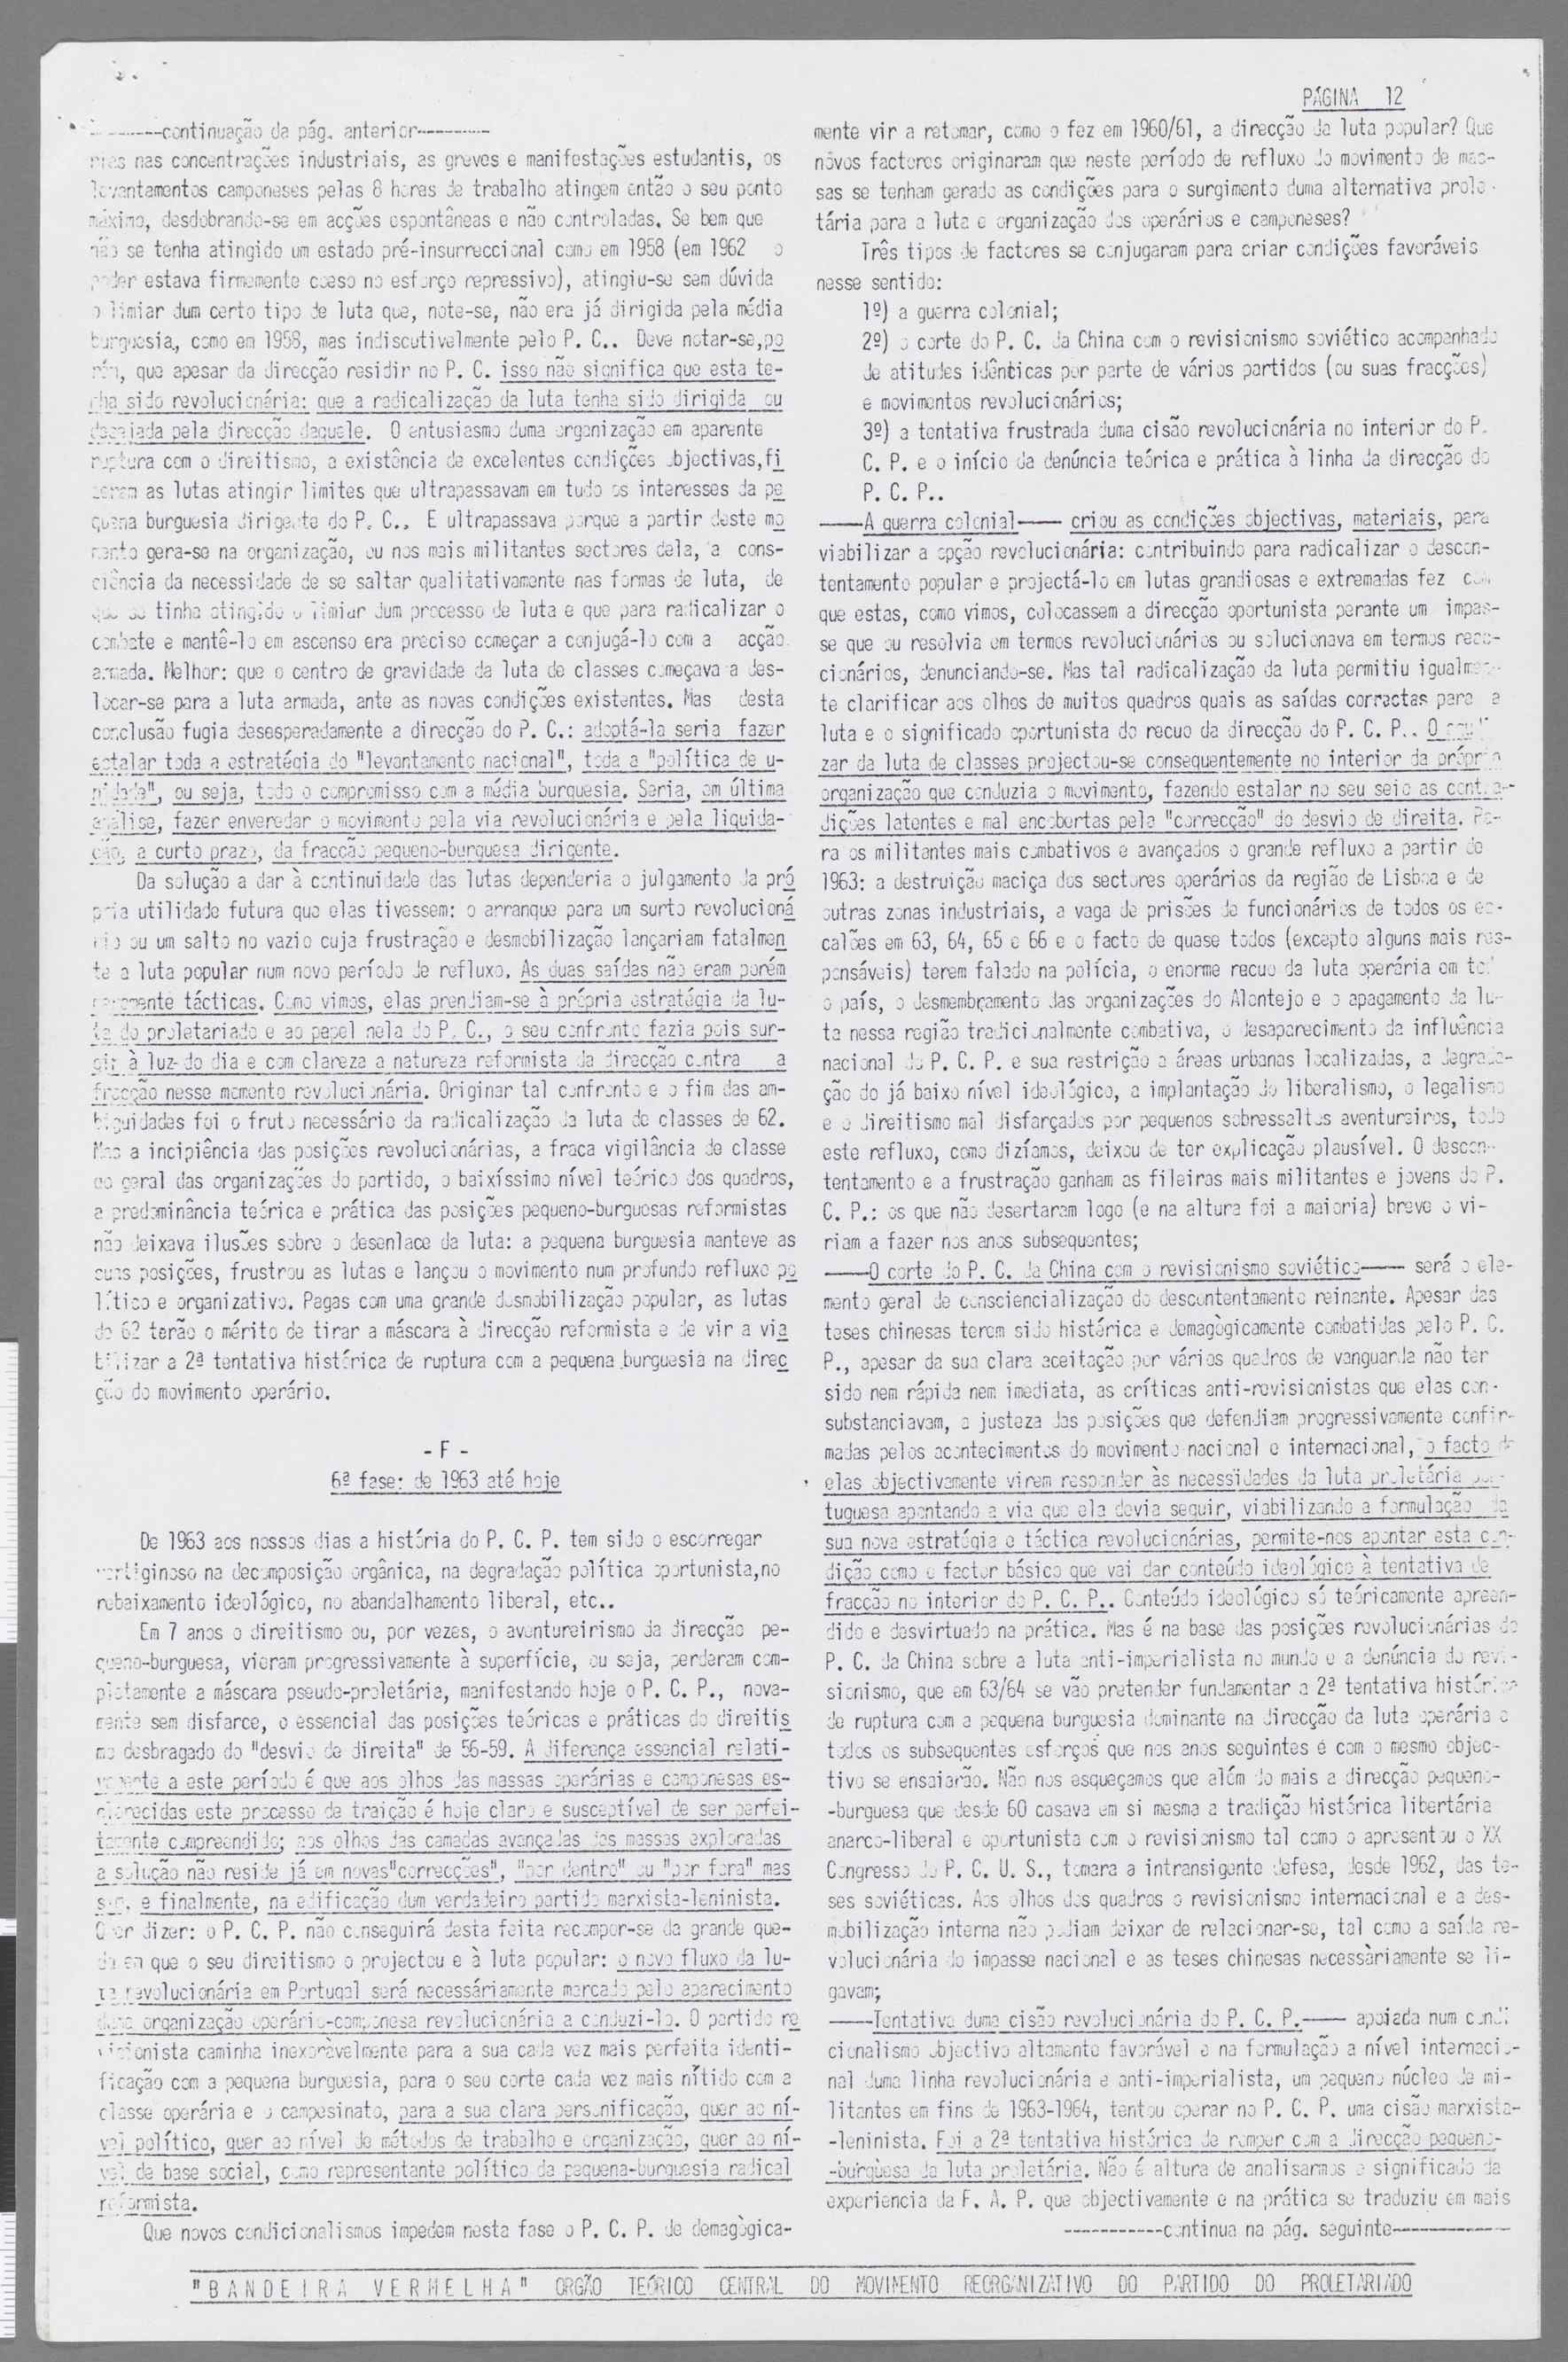 PÁGINA 12
----------continuação da pág. anterior----------
nas concentrações industriais, as greves e manifestações estudantis, os
levantamentos camponeses pelas 8 horas de trabalho atingem então o seu ponto
máximo, desdobrando-se em acções espontâneas e não controladas. Se bem que
não se tenha atingido um estado pré-insurreccional como em 1958 (em 1962 o
poder estava firmemente coeso no esforço repressivo), atingiu-se sem dúvida
o limiar dum certo tipo de luta que, note-se, não era já dirigida pela média
burguesia, como em 1958, mas indiscutivelmente pelo P. C.. Deve notar-se,po
rém, que apesar da direcção residir no P. C. isso não significa que esta te-
nha sido revolucionária: que a radicalização da luta tenha sido dirigida ou
desejada pela direcção daquele. O entusiasmo duma organização em aparente
ruptura com o direitismo, a existência de excelentes condições objectivas,fi
zeram as lutas atingir limites que ultrapassavam em tudo os interesses da pe
quena burguesia dirigente do P. C.. E ultrapassava porque a partir deste mo
mento gera-se na organização, ou nos mais militantes sectores dela, a cons-
ciência da necessidade de se saltar qualitativamente nas formas de luta, de
que se tinha atingido o limiar dum processo de luta e que para radicalizar o
combate e mantê-lo em ascenso era preciso começar a conjugá-lo com a acção
armada. Melhor: que o centro de gravidade da luta de classes começava a des-
locar-se para a luta armada, ante as novas condições existentes. Mas desta
conclusão fugia desesperadamente a direcção do P. C.: adoptá-la seria fazer
estalar toda a estratégia do "levantamento nacional", toda a "política de u-
nidade", ou seja, todo o compromisso com a média burguesia. Seria, em última
análise, fazer enveredar o movimento pela via revolucionária e pela liquida-
ção, a curto prazo, da fracção pequeno-burguesa dirigente.
Da solução a dar à continuidade das lutas dependeria o julgamento da pró
pria utilidade futura que elas tivessem: o arranque para um surto revolucioná
rio ou um salto no vazio cuja frustração e desmobilização lançariam fatalmen
te a luta popular num novo período de refluxo. As duas saídas não eram porém
meramente tácticas. Como vimos, elas prendiam-se à própria estratégia da lu-
ta do proletariado e ao papel nela do P. C., o seu confronto fazia pois sur-
gir à luz-do dia e com clareza a natureza reformista da direcção contra a
fracção nesse momento revolucionária. Originar tal confronto e o fim das am-
biguidades foi o fruto necessário da radicalização da luta de classes de 62.
Mas a incipiência das posições revolucionárias, a fraca vigilância de classe
ao geral das organizações do partido, o baixíssimo nível teórico dos quadros,
a predominância teórica e prática das posições pequeno-burguesas reformistas
não deixava ilusões sobre o desenlace da luta: a pequena burguesia manteve as
suas posições, frustrou as lutas e lançou o movimento num profundo refluxo po
lítico e organizativo. Pagas com uma grande desmobilização popular, as lutas
de 62 terão o mérito de tirar a máscara à direcção reformista e de vir a via
bilizar a 2ª tentativa histórica de ruptura com a pequena burguesia na direc
ção do movimento operário.
- F -
6ª fase: de 1963 até hoje
De 1963 aos nossos dias a história do P. C. P. tem sido o escorregar
vertiginoso na decomposição orgânica, na degradação política oportunista,no
rebaixamento ideológico, no abandalhamento liberal, etc..
Em 7 anos o direitismo ou, por vezes, o aventureirismo da direcção pe-
queno-burguesa, vieram progressivamente à superfície, ou seja, perderam com-
pletamente a máscara pseudo-proletária, manifestando hoje o P. C. P., nova-
mente sem disfarce, o essencial das posições teóricas e práticas do direitis
mo desbragado do "desvio de direita" de 56-59. A diferença essencial relati-
vamente a este período é que aos olhos das massas operárias e camponesas es-
clarecidas este processo de traição é hoje claro e susceptível de ser perfei-
tamente compreendido; aos olhos das camadas avançadas das massas exploradas
a solução não reside já em novas"correcções", "por dentro" ou "por fora" mas
sim, e finalmente, na edificação dum verdadeiro partido marxista-leninista.
Quer dizer: o P. C. P. não conseguirá desta feita recompor-se da grande que-
da em que o seu direitismo o projectou e à luta popular: o novo fluxo da lu-
ta revolucionária em Portugal será necessáriamente marcado pelo aparecimento
duma organização operário-camponesa revolucionária a conduzi-lo. O partido re
visionista caminha inexoràvelmente para a sua cada vez mais perfeita identi-
ficação com a pequena burguesia, para o seu corte cada vez mais nítido com a
classe operária e o campesinato, para a sua clara personificação, quer ao ní-
vel político, quer ao nível de métodos de trabalho e organização, quer ao ní-
vel de base social, como representante político da pequena-burguesia radical
reformista.
Que novos condicionalismos impedem nesta fase o P. C. P. de demagògica-
mente vir a retomar, como o fez em 1960/61, a direcção da luta popular? Que
novos factores originaram que neste período de refluxo do movimento de mas-
sas se tenham gerado as condições para o surgimento duma alternativa prole-
tária para a luta e organização dos operários e camponeses?
Três tipos de factores se conjugaram para criar condições favoráveis
nesse sentido:
1º) a guerra colonial;
2º) o corte do P. C. da China com o revisionismo soviético acompanhado
de atitudes idênticas por parte de vários partidos (ou suas fracções)
e movimentos revolucionários;
3º) a tentativa frustrada duma cisão revolucionária no interior do P.
C. P. e o início da denúncia teórica e prática à linha da direcção do
P. C. P..
——A guerra colonial—— criou as condições objectivas, materiais, para
viabilizar a opção revolucionária: contribuindo para radicalizar o descon-
tentamento popular e projectá-lo em lutas grandiosas e extremadas fez com
que estas, como vimos, colocassem a direcção oportunista perante um impas-
se que ou resolvia em termos revolucionários ou solucionava em termos reac-
cionários, denunciando-se. Mas tal radicalização da luta permitiu igualmen-
te clarificar aos olhos de muitos quadros quais as saídas correctas para a
luta e o significado oportunista do recuo da direcção do P. C. P.. O
zar da luta de classes projectou-se consequentemente no interior da própria
organização que conduzia o movimento, fazendo estalar no seu seio as contra-
dições latentes e mal encobertas pela "correcção" do desvio de direita. Pa-
ra os militantes mais combativos e avançados o grande refluxo a partir de
1963: a destruição maciça dos sectores operários da região de Lisboa e de
outras zonas industriais, a vaga de prisões de funcionários de todos os es-
calões em 63, 64, 65 e 66 e o facto de quase todos (excepto alguns mais res-
ponsáveis) terem falado na polícia, o enorme recuo da luta operária em todo
o país, o desmembramento das organizações do Alentejo e o apagamento da lu-
ta nessa região tradicionalmente combativa, o desaparecimento da influência
nacional do P. C. P. e sua restrição a áreas urbanas localizadas, a degrada-
ção do já baixo nível ideológico, a implantação do liberalismo, o legalismo
e o direitismo mal disfarçados por pequenos sobressaltos aventureiros, todo
este refluxo, como dizíamos, deixou de ter explicação plausível. O descon-
tentamento e a frustração ganham as fileiras mais militantes e jovens do P.
C. P.: os que não desertaram logo (e na altura foi a maioria) breve o vi-
riam a fazer nos anos subsequentes;
——O corte do P. C. da China com o revisionismo soviético—— será o ele-
mento geral de consciencialização do descontentamento reinante. Apesar das
teses chinesas terem sido histérica e demagògicamente combatidas pelo P. C.
P., apesar da sua clara aceitação por vários quadros de vanguarda não ter
sido nem rápida nem imediata, as críticas anti-revisionistas que elas con-
substanciavam, a justeza das posições que defendiam progressivamente confir-
madas pelos acontecimentos do movimento nacional e internacional, o facto de
elas objectivamente virem responder às necessidades da luta proletária por-
tuguesa apontando a via que ela devia seguir, viabilizando a formulação da
sua nova estratégia e táctica revolucionárias, permite-nos apontar esta con-
dição como o factor básico que vai dar conteúdo ideológico à tentativa de
fracção no interior do P. C. P.. Conteúdo ideológico só teóricamente apreen-
dido e desvirtuado na prática. Mas é na base das posições revolucionárias do
P. C. da China sobre a luta anti-imperialista no mundo e a denúncia do revi-
sionismo, que em 63/64 se vão pretender fundamentar a 2ª tentativa histórica
de ruptura com a pequena burguesia dominante na direcção da luta operária e
todos os subsequentes esforços que nos anos seguintes e com o mesmo objec-
tivo se ensaiarão. Não nos esqueçamos que além do mais a direcção pequeno-
-burguesa que desde 60 casava em si mesma a tradição histórica libertária
anarco-liberal e oportunista com o revisionismo tal como o apresentou o XX
Congresso do P. C. U. S., tomara a intransigente defesa, desde 1962, das te-
ses soviéticas. Aos olhos dos quadros o revisionismo internacional e a des-
mobilização interna não podiam deixar de relacionar-se, tal como a saída re-
volucionária do impasse nacional e as teses chinesas necessàriamente se li-
gavam;
——Tentativa duma cisão revolucionária do P. C. P.—— apoiada num condi
cionalismo objectivo altamente favorável e na formulação a nível internacio-
nal duma linha revolucionária e anti-imperialista, um pequeno núcleo de mi-
litantes em fins de 1963-1964, tentou operar no P. C. P. uma cisão marxista-
-leninista. Foi a 2ª tentativa histórica de romper com a direcção pequeno-
-burguesa da luta proletária. Não é altura de analisarmos o significado da
experiencia da F. A. P. que objectivamente e na prática se traduziu em mais
-----------continua na pág. seguinte-----------
"BANDEIRA VERMELHA" ORGÃO TEÓRICO CENTRAL DO MOVIMENTO REORGANIZATIVO DO PARTIDO DO PROLETARIADO